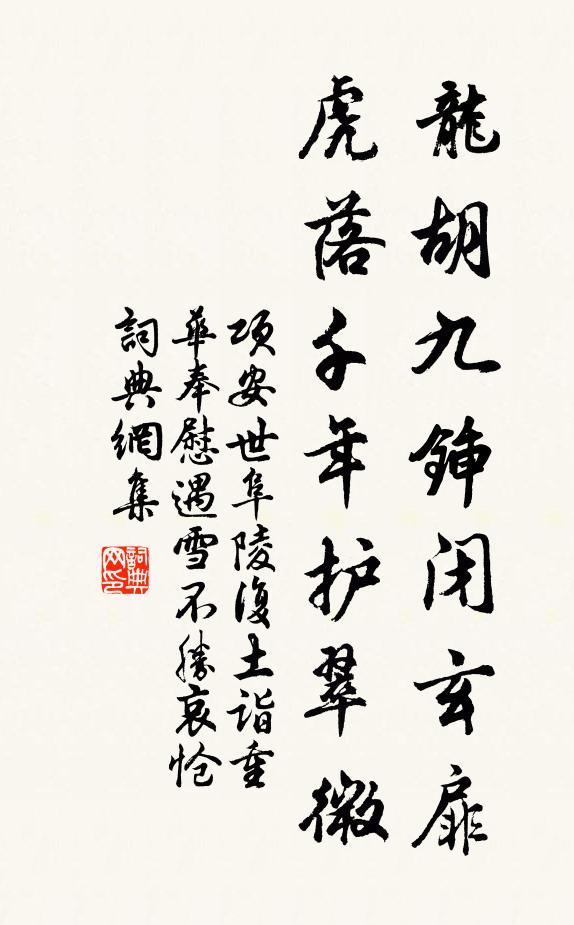 龍胡九鍤闭玄扉
虎落千年护翠微
項安世阜陵復土詣重
華奉慰遇雪不勝哀怆
詞典網集
詞典
网印